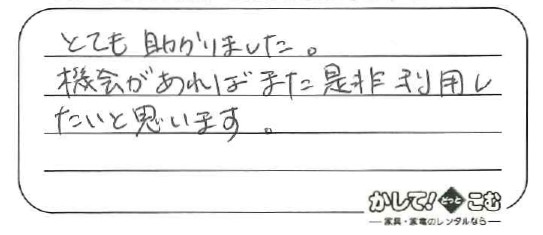 とても助かりました。
機会があればまた是非利用し
たいと思います。
かして!どっとこむ
家具・家電のレンタルなら